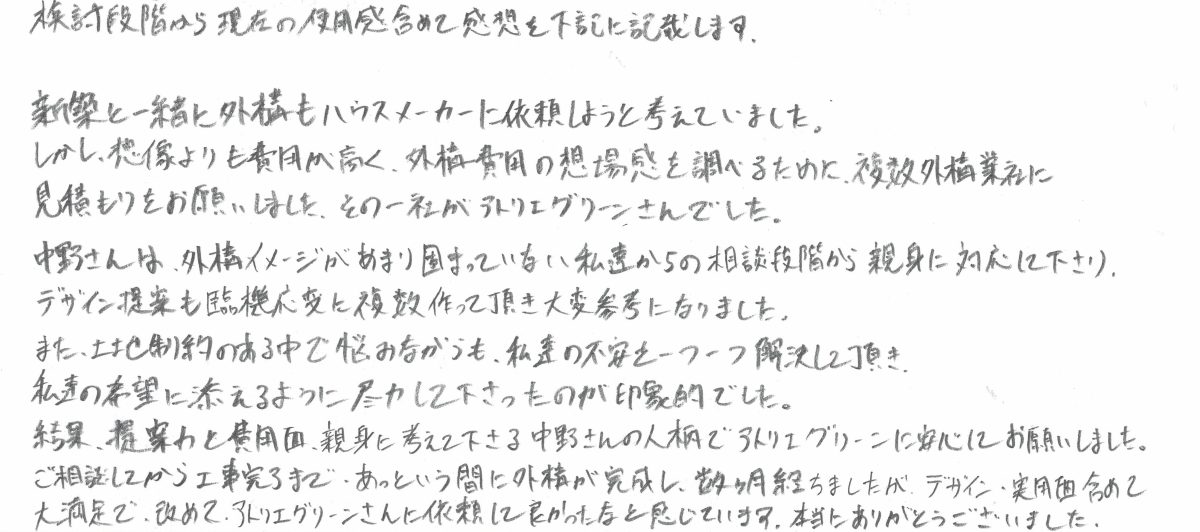 検討段階から現在の使用感含めて感想を下記に記載します.
新築と一緒に外構もハウスメーカーに依頼しようと考えていました。
しかし、想像よりも費用が高く、外構費用の想場感を調べるために、複数外構業社に
見積もりをお願いしました、その一社がアトリエグリーンさんでした。
中野さんは、外構イメージがあまり固まっていない私達からの相談段階から親身に対応して下さり、
デザイン提案も臨機応変に複数作って頂き大変参考になりました。
また、土地制約のある中で悩みながらも、私達の不安を一つ一つ解決して頂き、
私達の希望に添えるように尽力して下さったのが印象的でした。
結果、提案力と費用面、親身に考えて下さる中野さんの人柄でアトリエグリーンに安心してお願いしました。
ご相談してから工事完了まで、あっという間に外構が完成し、数ヶ月経ちましたが、デザイン・実用面含めて
大満足で、改めて、アトリエグリーンさんに依頼して良かったなと感じています。本当にありがとうございました.